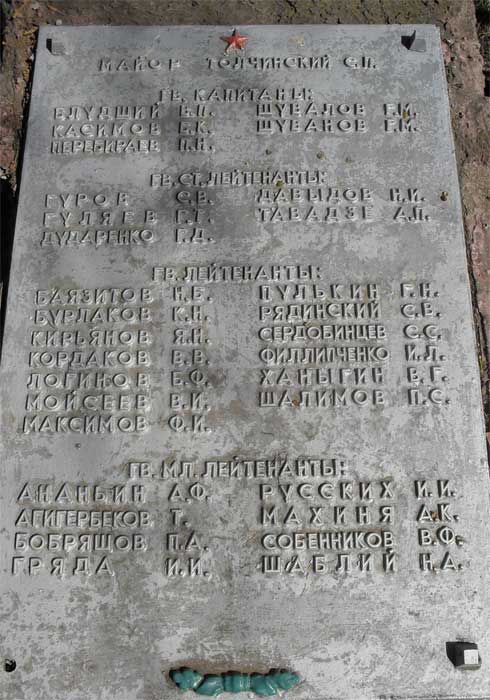 МАЙОР ТОЛЧИНСКИЙ С.П.
ГВ. КАПИТАНЫ:
БЛУДШИЙ В.П. ШУВАЛОВ Г.М.
КАСИМОВ Б.К. ШУВАНОВ Г.М.
ПЕРЕБИРАЕВ П.Н.
ГВ. СТ. ЛЕЙТЕНАНТЫ:
ГУРОВ С.В. ДАВЫДОВ Н.И.
ГУЛЯЕВ Г.Г. ТАВАДЗЕ А.П.
ДУДАРЕНКО Г.Д.
ГВ. ЛЕЙТЕНАНТЫ:
БАЯЗИТОВ Н.Б. ПУЛЬКИН Г.Н.
БУРЛАКОВ К.Н. РЯДИНСКИЙ С.В.
КИРЬЯНОВ Я.Н. СЕРДОБИНЦЕВ С.С.
КОРДАКОВ В.В. ФИЛЛИПЧЕНКО И.Д.
ЛОГИНОВ Б.Ф. ХАНЫГИН В.Г.
МОЙСЕЕВ В.И. ШАЛИМОВ П.С.
МАКСИМОВ Ф.И.
ГВ. МЛ. ЛЕЙТЕНАНТЫ:
АНАНЬИН А.Ф. РУССКИХ И.И.
АГИГЕРБЕКОВ Т. МАХИНЯ А.К.
БОБРЯШОВ П.А. СОБЕННИКОВ В.Ф.
ГРЯДА И.И. ШАБЛИЙ Н.А.